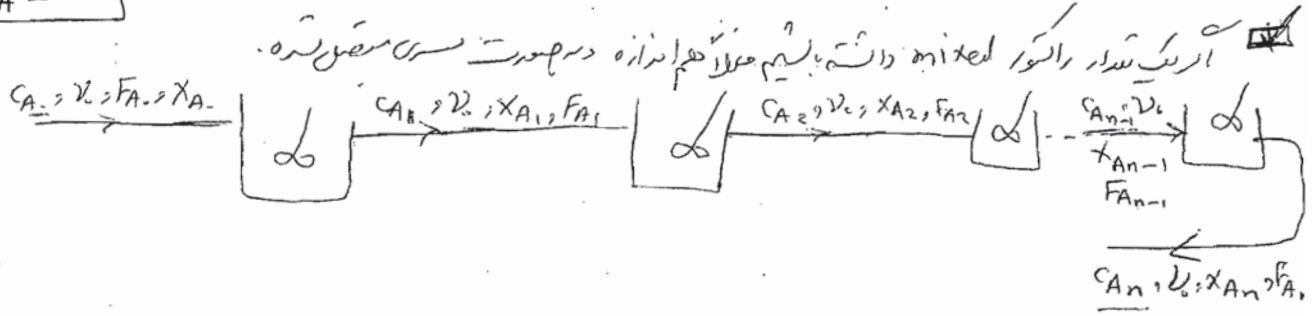 اگر یک تعداد راکتور mixed داشته باشیم مثلاً هم اندازه در صورت سری متصل شده.
C_A₀, ν₀, F_A₀, X_A₀
C_A₁, ν₀, X_A₁, F_A₁
C_A₂, ν₀, X_A₂, F_A₂
C_An-1, ν₀
X_An-1
F_An-1
C_An, ν₀, X_An, F_An